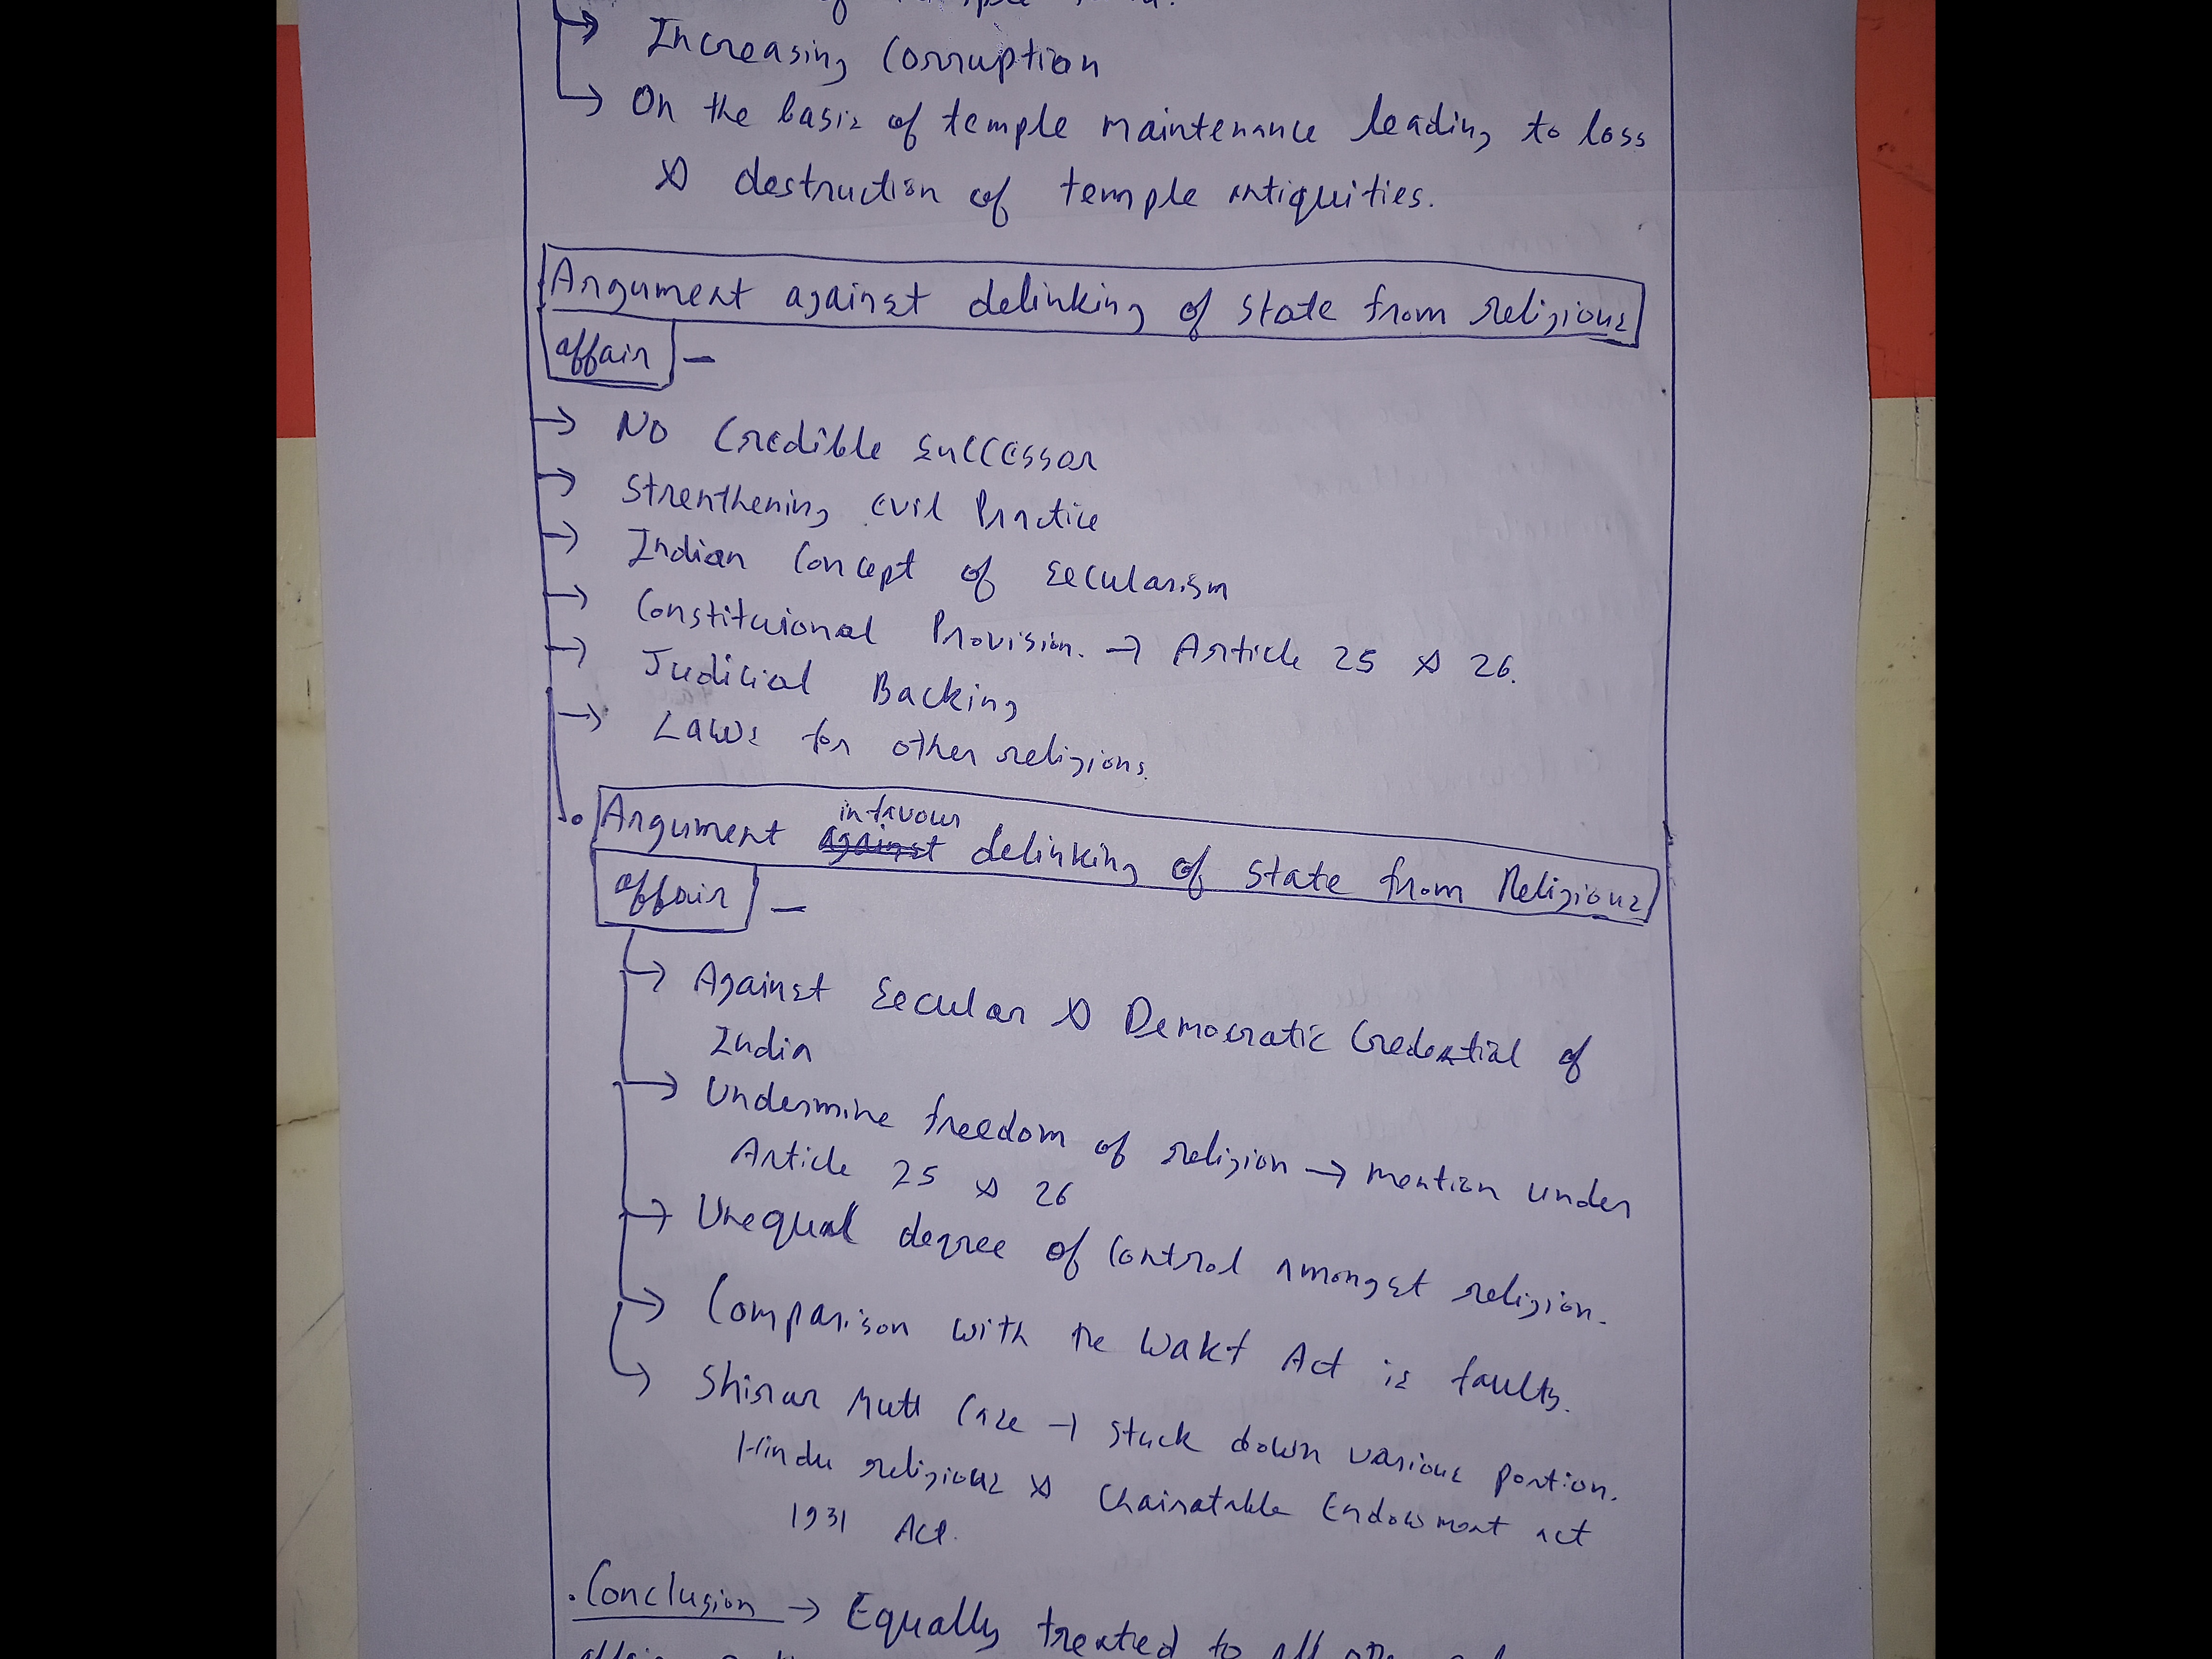 Increasing Corruption
On the basis of temple maintenance leading to loss
& destruction of temple antiquities.
Argument against delinking of state from religious
affair -
No Credible successor
Strenthening evil Practice
Indian Concept of secularism
Constituional Provision. → Article 25 & 26.
Judicial Backing
Laws for other religions.
in favour
Argument against delinking of state from Religious
affair -
Against Secular & Democratic Credential of
India
Undermine freedom of religion → mention under
Article 25 & 26
Unequal degree of Control amongst religion.
Comparison with the Wakf Act is faulty.
Shirur Mutt Case → stuck down various portion.
Hindu religious & Chairatable Endowment act
1931 Act.
. Conclusion → Equally treated to all